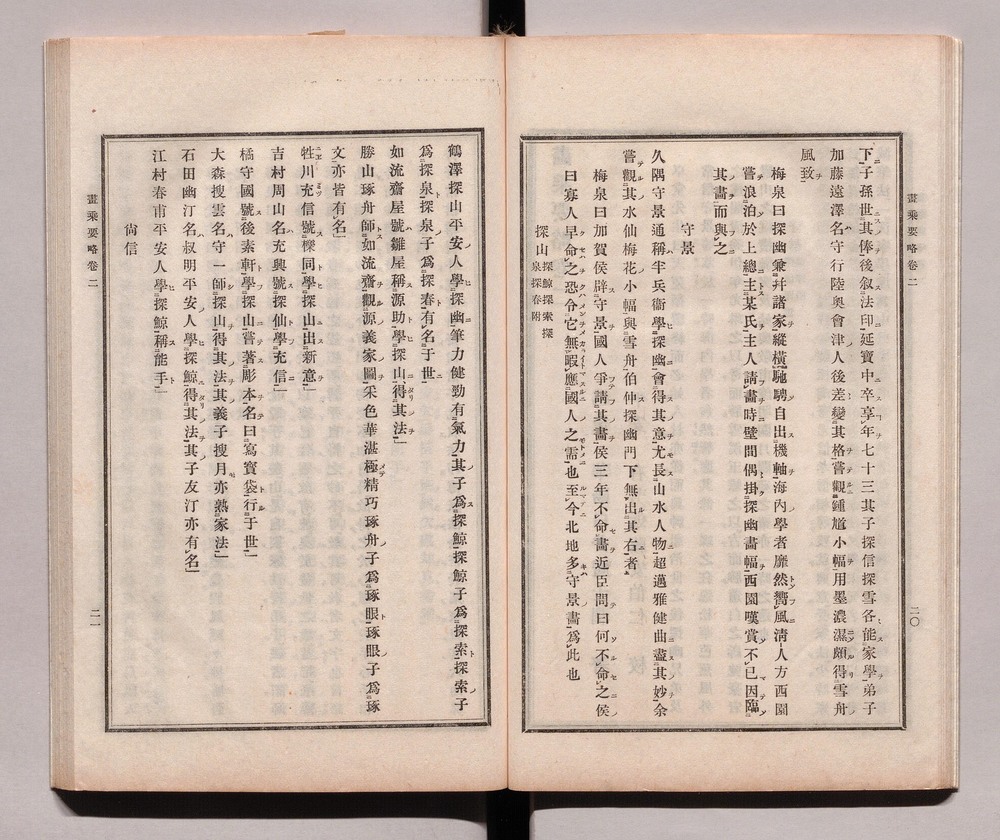 畫乘要略卷二
二〇
下子孫世其俸後叙法印延寶中卒享年七十三其子探信探雪各能家學弟子
加藤遠澤名守行陸奥會津人後差變其格嘗觀鍾馗小幅用墨濃濕頗得雪舟
風致
梅泉曰探幽兼幷諸家縱橫馳騁自出機軸海內學者靡然嚮風淸人方西園
嘗浪泊於上總主某氏主人請畫時壁間偶掛探幽畫幅西園嘆賞不已因臨
其畫而與之
守景
久隅守景通稱半兵衞學探幽會得其意尤長山水人物超邁雅健曲盡其妙余
嘗觀其水仙梅花小幅與雪舟伯仲探幽門下無出其右者
梅泉曰加賀侯辟守景國人爭請其畫侯三年不命畫近臣問曰何不命之侯
曰寡人早命之恐令它無暇應國人之需也至今北地多守景畫爲此也
探山 探鯨探索探泉探春附
鶴澤探山平安人學探幽筆力健勁有氣力其子爲探鯨探鯨子爲探索探索子
爲探泉探泉子爲探春有名于世
如流齋屋號雛屋稱源助學探山得其法
勝山琢舟師如流齋觀源義家圖采色華湛極精巧琢舟子爲琢眼琢眼子爲琢
文亦皆有名
牲川充信號檪同學探山出新意
吉村周山名充興號探仙學充信
橘守國號後素軒學探山嘗著彫本名曰寫寶袋行于世
大森搜雲名守一師探山得其法其義子搜月亦熟家法
石田幽汀名叔明平安人學探鯨得其法其子友汀亦有名
江村春甫平安人學探鯨稱能手
尙信
畫乘要略卷二
二一